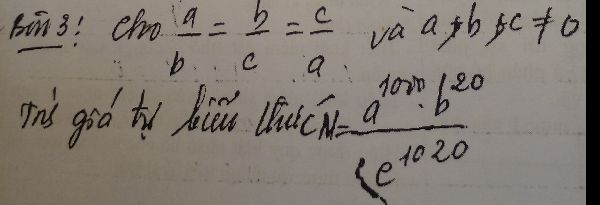 Bài 3: Cho a/b = b/c = c/a và a + b + c ≠ 0
giá trị biểu thức N = a^1000 . b^20 / c^1020